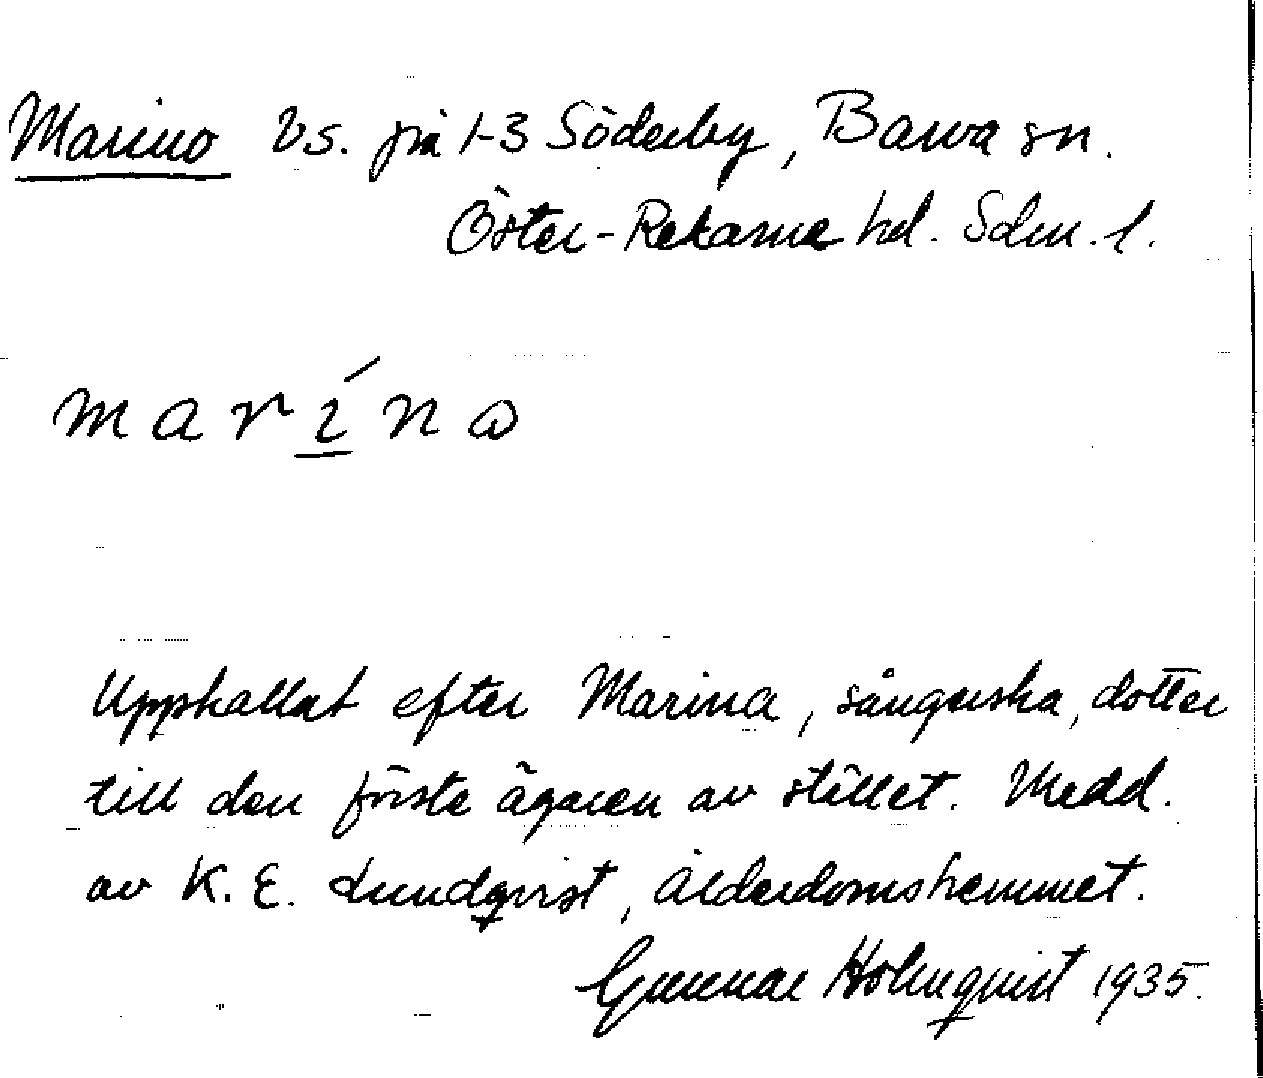 Marino Vs. på 1-3 Söderby, Barva sn.
Öster-Rekarne hd. Sdm. l.
marino
Uppkallat efter Marina, sångerska, dotter
till den förste ägaren av stället. Medd.
av K. E. Lundqvist, ålderdomshemmet.
Gunnar Holmquist 1935.